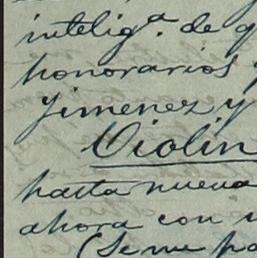 intelig.ª de q
honorarios y
Jimenez y
Violin
hasta nueva
ahora con
(Se me pa